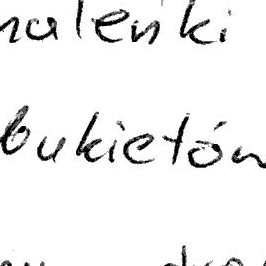 maleńki
bukietów